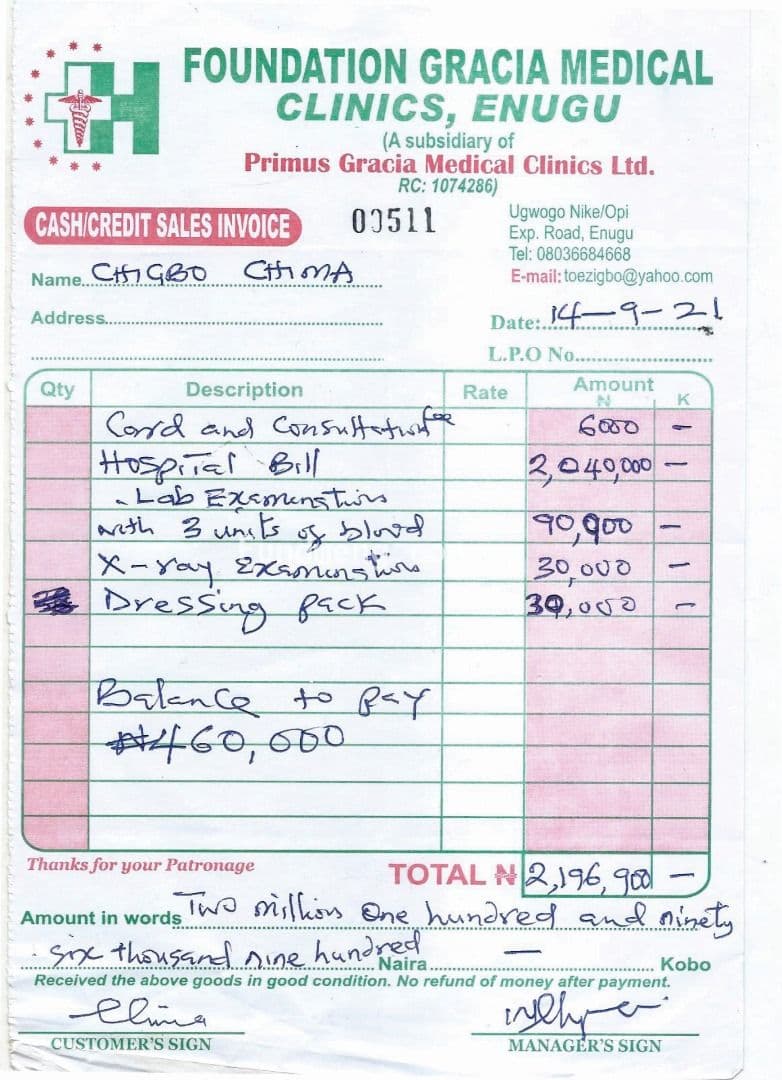 H
FOUNDATION GRACIA MEDICAL
CLINICS, ENUGU
(A subsidiary of
Primus Gracia Medical Clinics Ltd.
RC: 1074286)
CASH/CREDIT SALES INVOICE
00511
Ugwogo Nike/Opi
Exp. Road, Enugu
Tel: 08036684668
E-mail: toezigbo@yahoo.com
Name CHIGBO CHIMA
Address
Date: 14-9-21
L.P.O No.
Qty Description Rate Amount
N K
Card and Consultation fee 6000 -
Hospital Bill 2,040,000 -
- Lab Examinations
with 3 units of blood 90,900 -
X-ray Examinations 30,000 -
Dressing pack 30,000 -
Balance to pay
₦460,000
Thanks for your Patronage
TOTAL ₦ 2,196,900 -
Amount in words Two million One hundred and ninety
six thousand nine hundred Naira - Kobo
Received the above goods in good condition. No refund of money after payment.
Chima
CUSTOMER'S SIGN
MANAGER'S SIGN